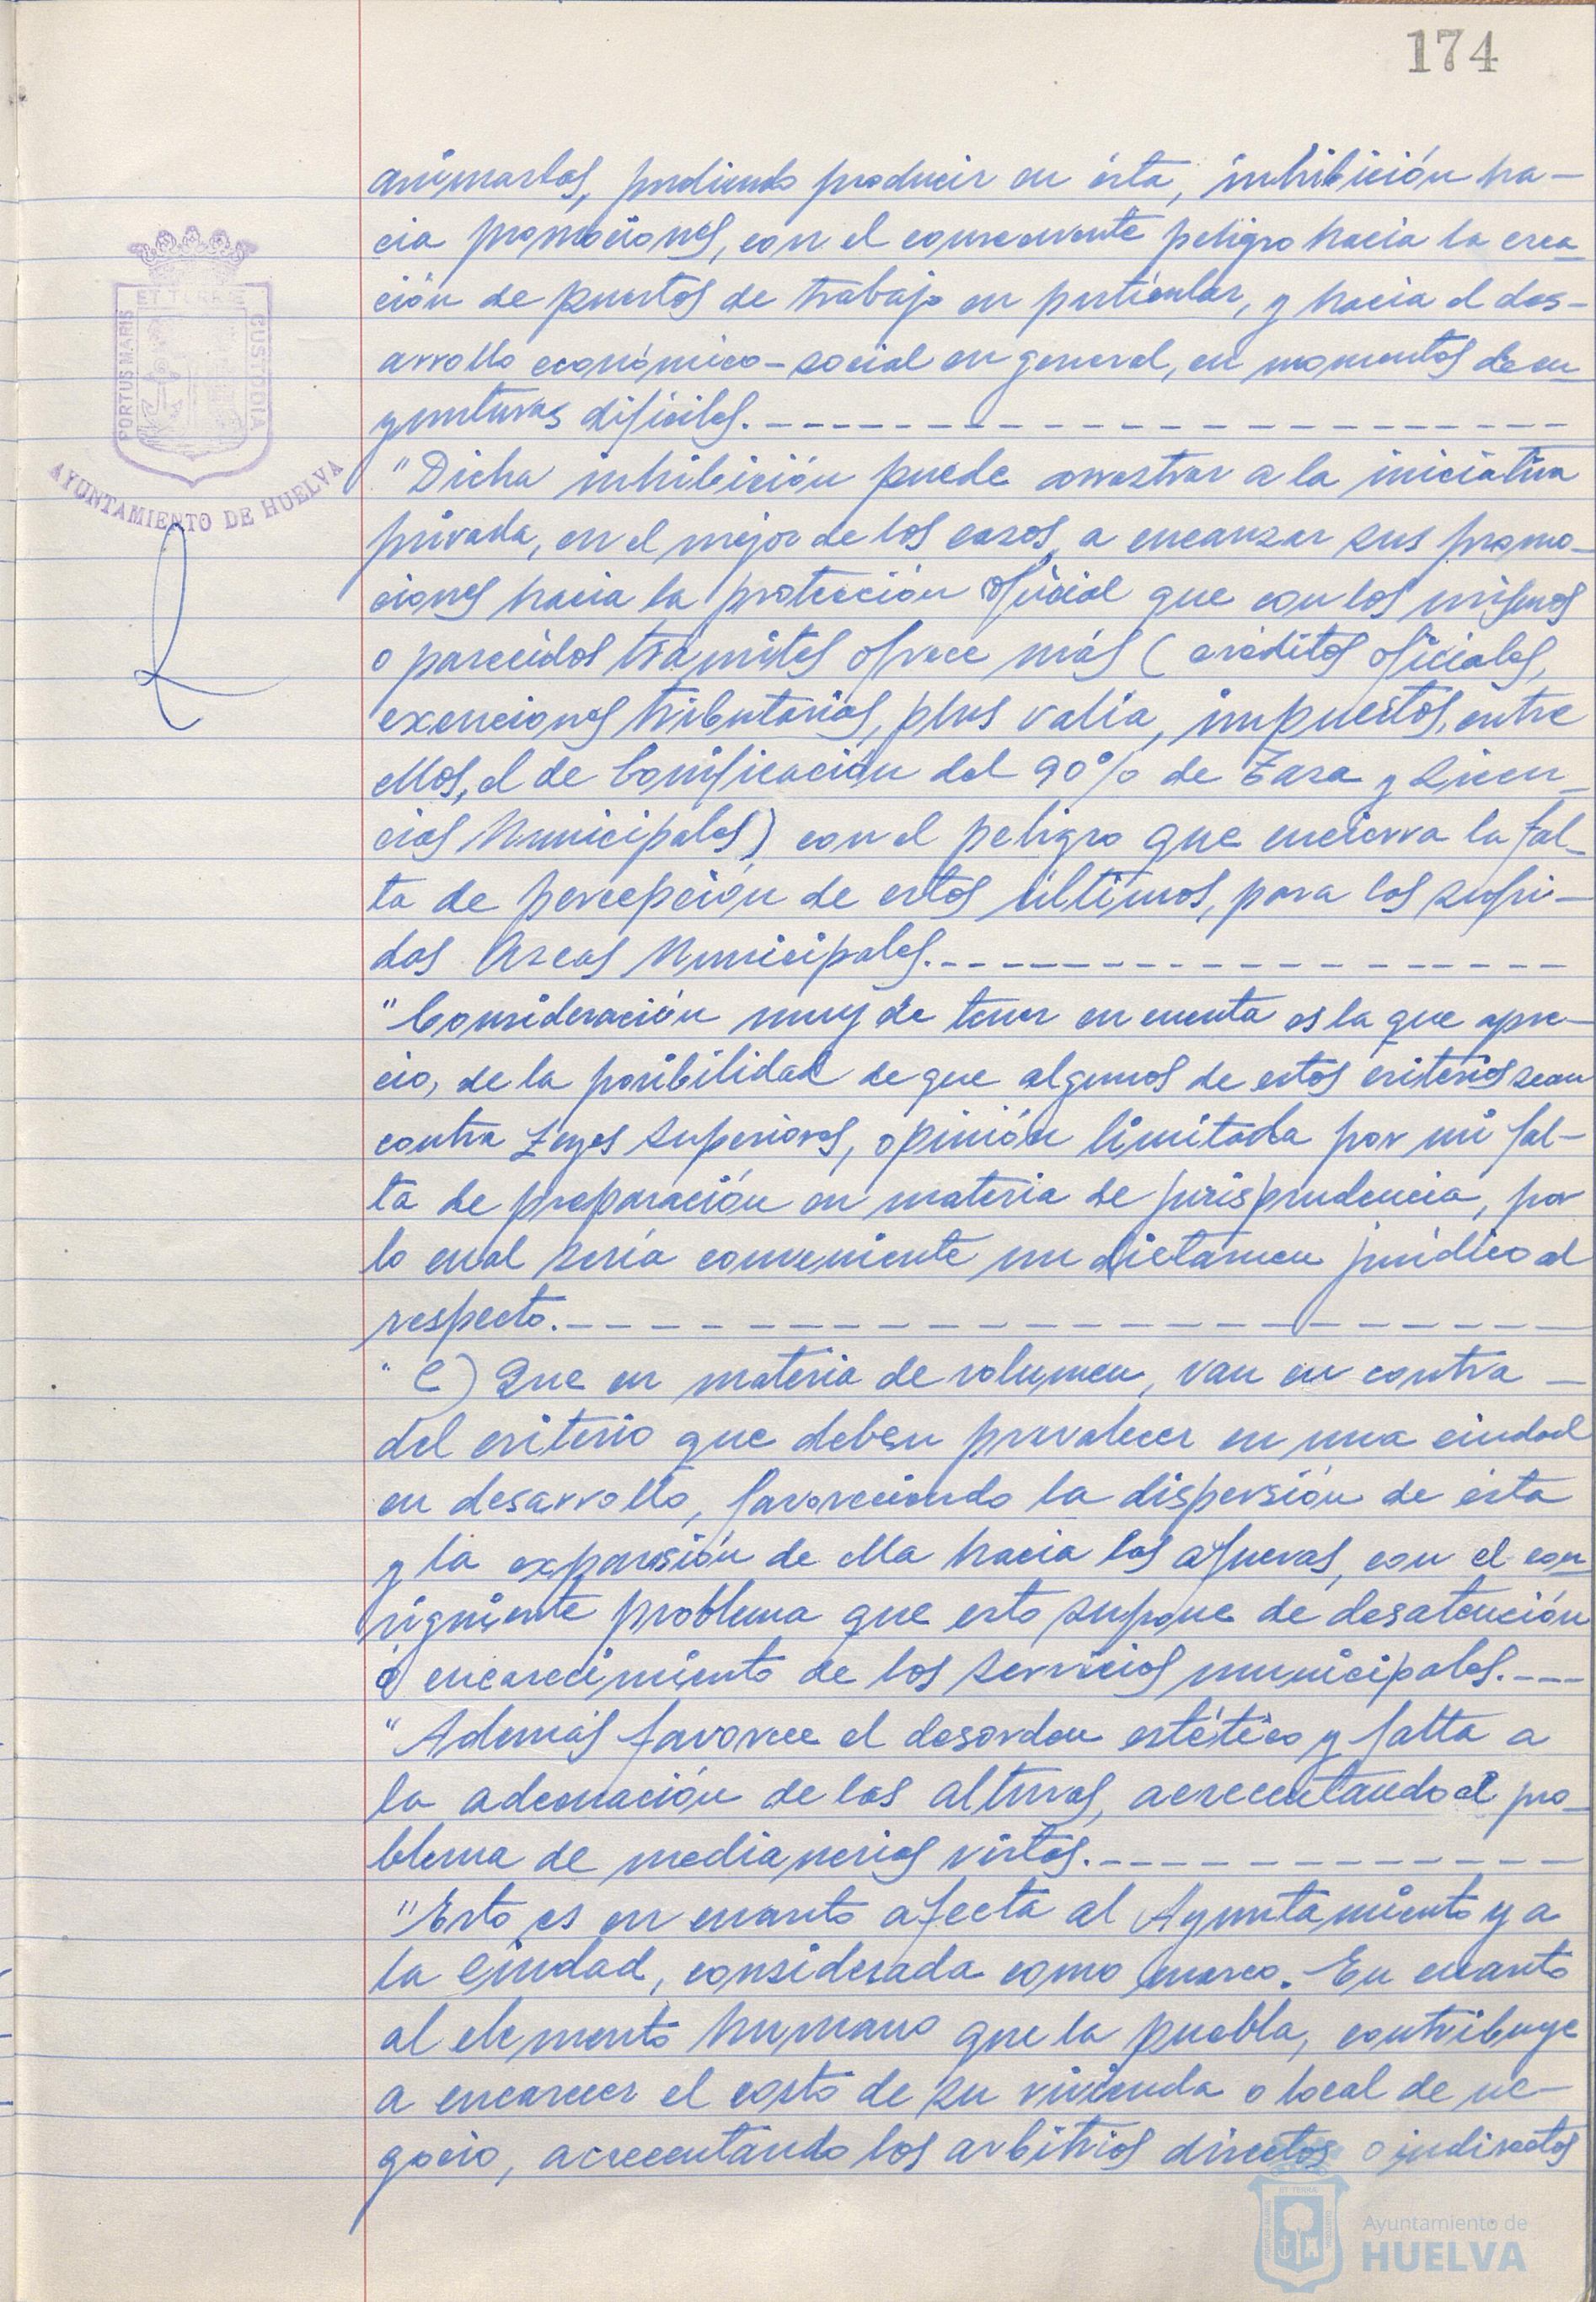 174
PORTUS MARIS
ET TERRAE
CUSTODIA
AYUNTAMIENTO DE HUELVA
animarlas, pudiendo producir en ésta, inhibición ha-
cia promociones, con el consecuente peligro hacia la crea
ción de puestos de trabajo en particular, y hacia el des-
arrollo económico-social en general, en momentos de co
yunturas difíciles.
"Dicha inhibición puede arrastrar a la iniciativa
privada, en el mejor de los casos, a encauzar sus promo-
ciones hacia la protección oficial que con los mismos
o parecidos trámites ofrece más (créditos oficiales,
exenciones tributarias, plus valía, impuestos, entre
ellos, el de bonificación del 90% de Tasa y Licen-
cias Municipales) con el peligro que encierra la fal-
ta de percepción de estos últimos, para las sufri-
das Arcas Municipales.
"Consideración muy de tener en cuenta es la que apre-
cio, de la posibilidad de que algunos de estos criterios sean
contra Leyes Superiores, opinión limitada por mi fal-
ta de preparación en materia de jurisprudencia, por
lo cual sería conveniente un dictamen jurídico al
respecto.
" C) Que en materia de volumen, van en contra
del criterio que deben prevalecer en una ciudad
en desarrollo, favoreciendo la dispersión de ésta
y la expansión de ella hacia las afueras, con el con
siguiente problema que esto supone de desatención
o encarecimiento de los servicios municipales.
"Además favorece el desorden estético y falta a
la adecuación de las alturas, acrecentando el pro-
blema de medianerias vistas.
"Esto es en cuanto afecta al Ayuntamiento y a
la Ciudad, considerada como marco. En cuanto
al elemento humano que la puebla, contribuye
a encarecer el costo de su vivienda o local de ne-
gocio, acrecentando los arbitrios directos o indirectos
Ayuntamiento de
HUELVA